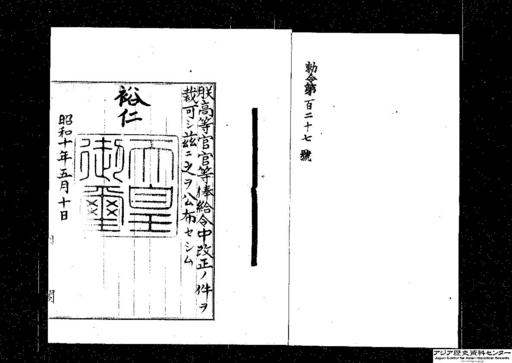 勅令第百二十七號
朕高等官官等俸給令中改正ノ件ヲ
裁可シ茲ニ之ヲ公布セシム
裕仁
天皇
御璽
昭和十年五月十日
アジア歴史資料センター
Japan Center for Asian Historical Records